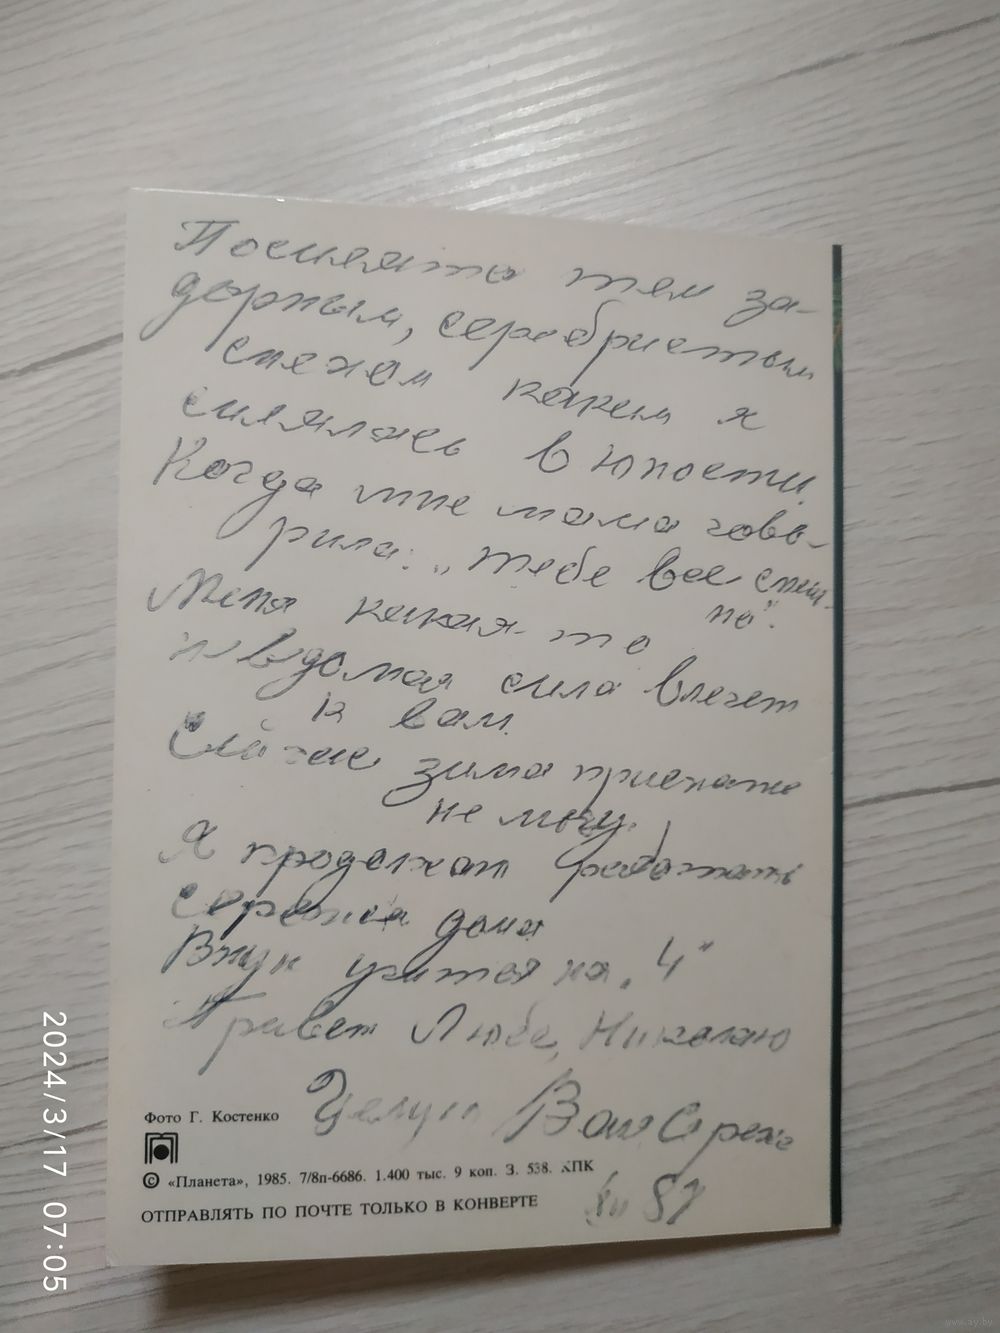 Посмеяться тем за-
дорным, серебристым
смехом каким я
смеялась в юности.
Когда мне мама гово-
рила: „тебе все смеш-
но".
Меня какая-то
неведомая сила влечет
к вам.
зима приехать
не могу.
Я продолжаю работать
Сережа дома
Внук учится на „4"
Привет Любе, Николаю
Целую Ваш
XII 87
Фото Г. Костенко
© «Планета», 1985. 7/8п-6686. 1.400 тыс. 9 коп. З. 538. КПК
ОТПРАВЛЯТЬ ПО ПОЧТЕ ТОЛЬКО В КОНВЕРТЕ
2024/3/17 07:05
www.ay.by